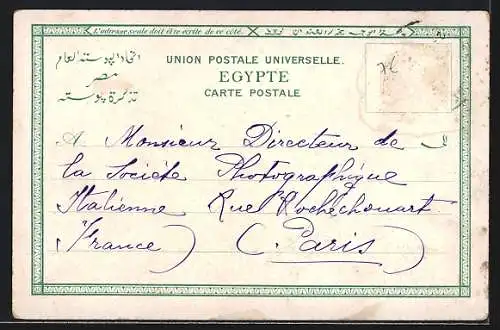 L'adresse seule doit être écrite de ce côté.
اتحاد البوسته العام
مصر
تذكرة بوسته
UNION POSTALE UNIVERSELLE.
EGYPTE
CARTE POSTALE
A Monsieur Directeur de
la Société Photographique
Italienne Rue Rochechouart
(France) (Paris)